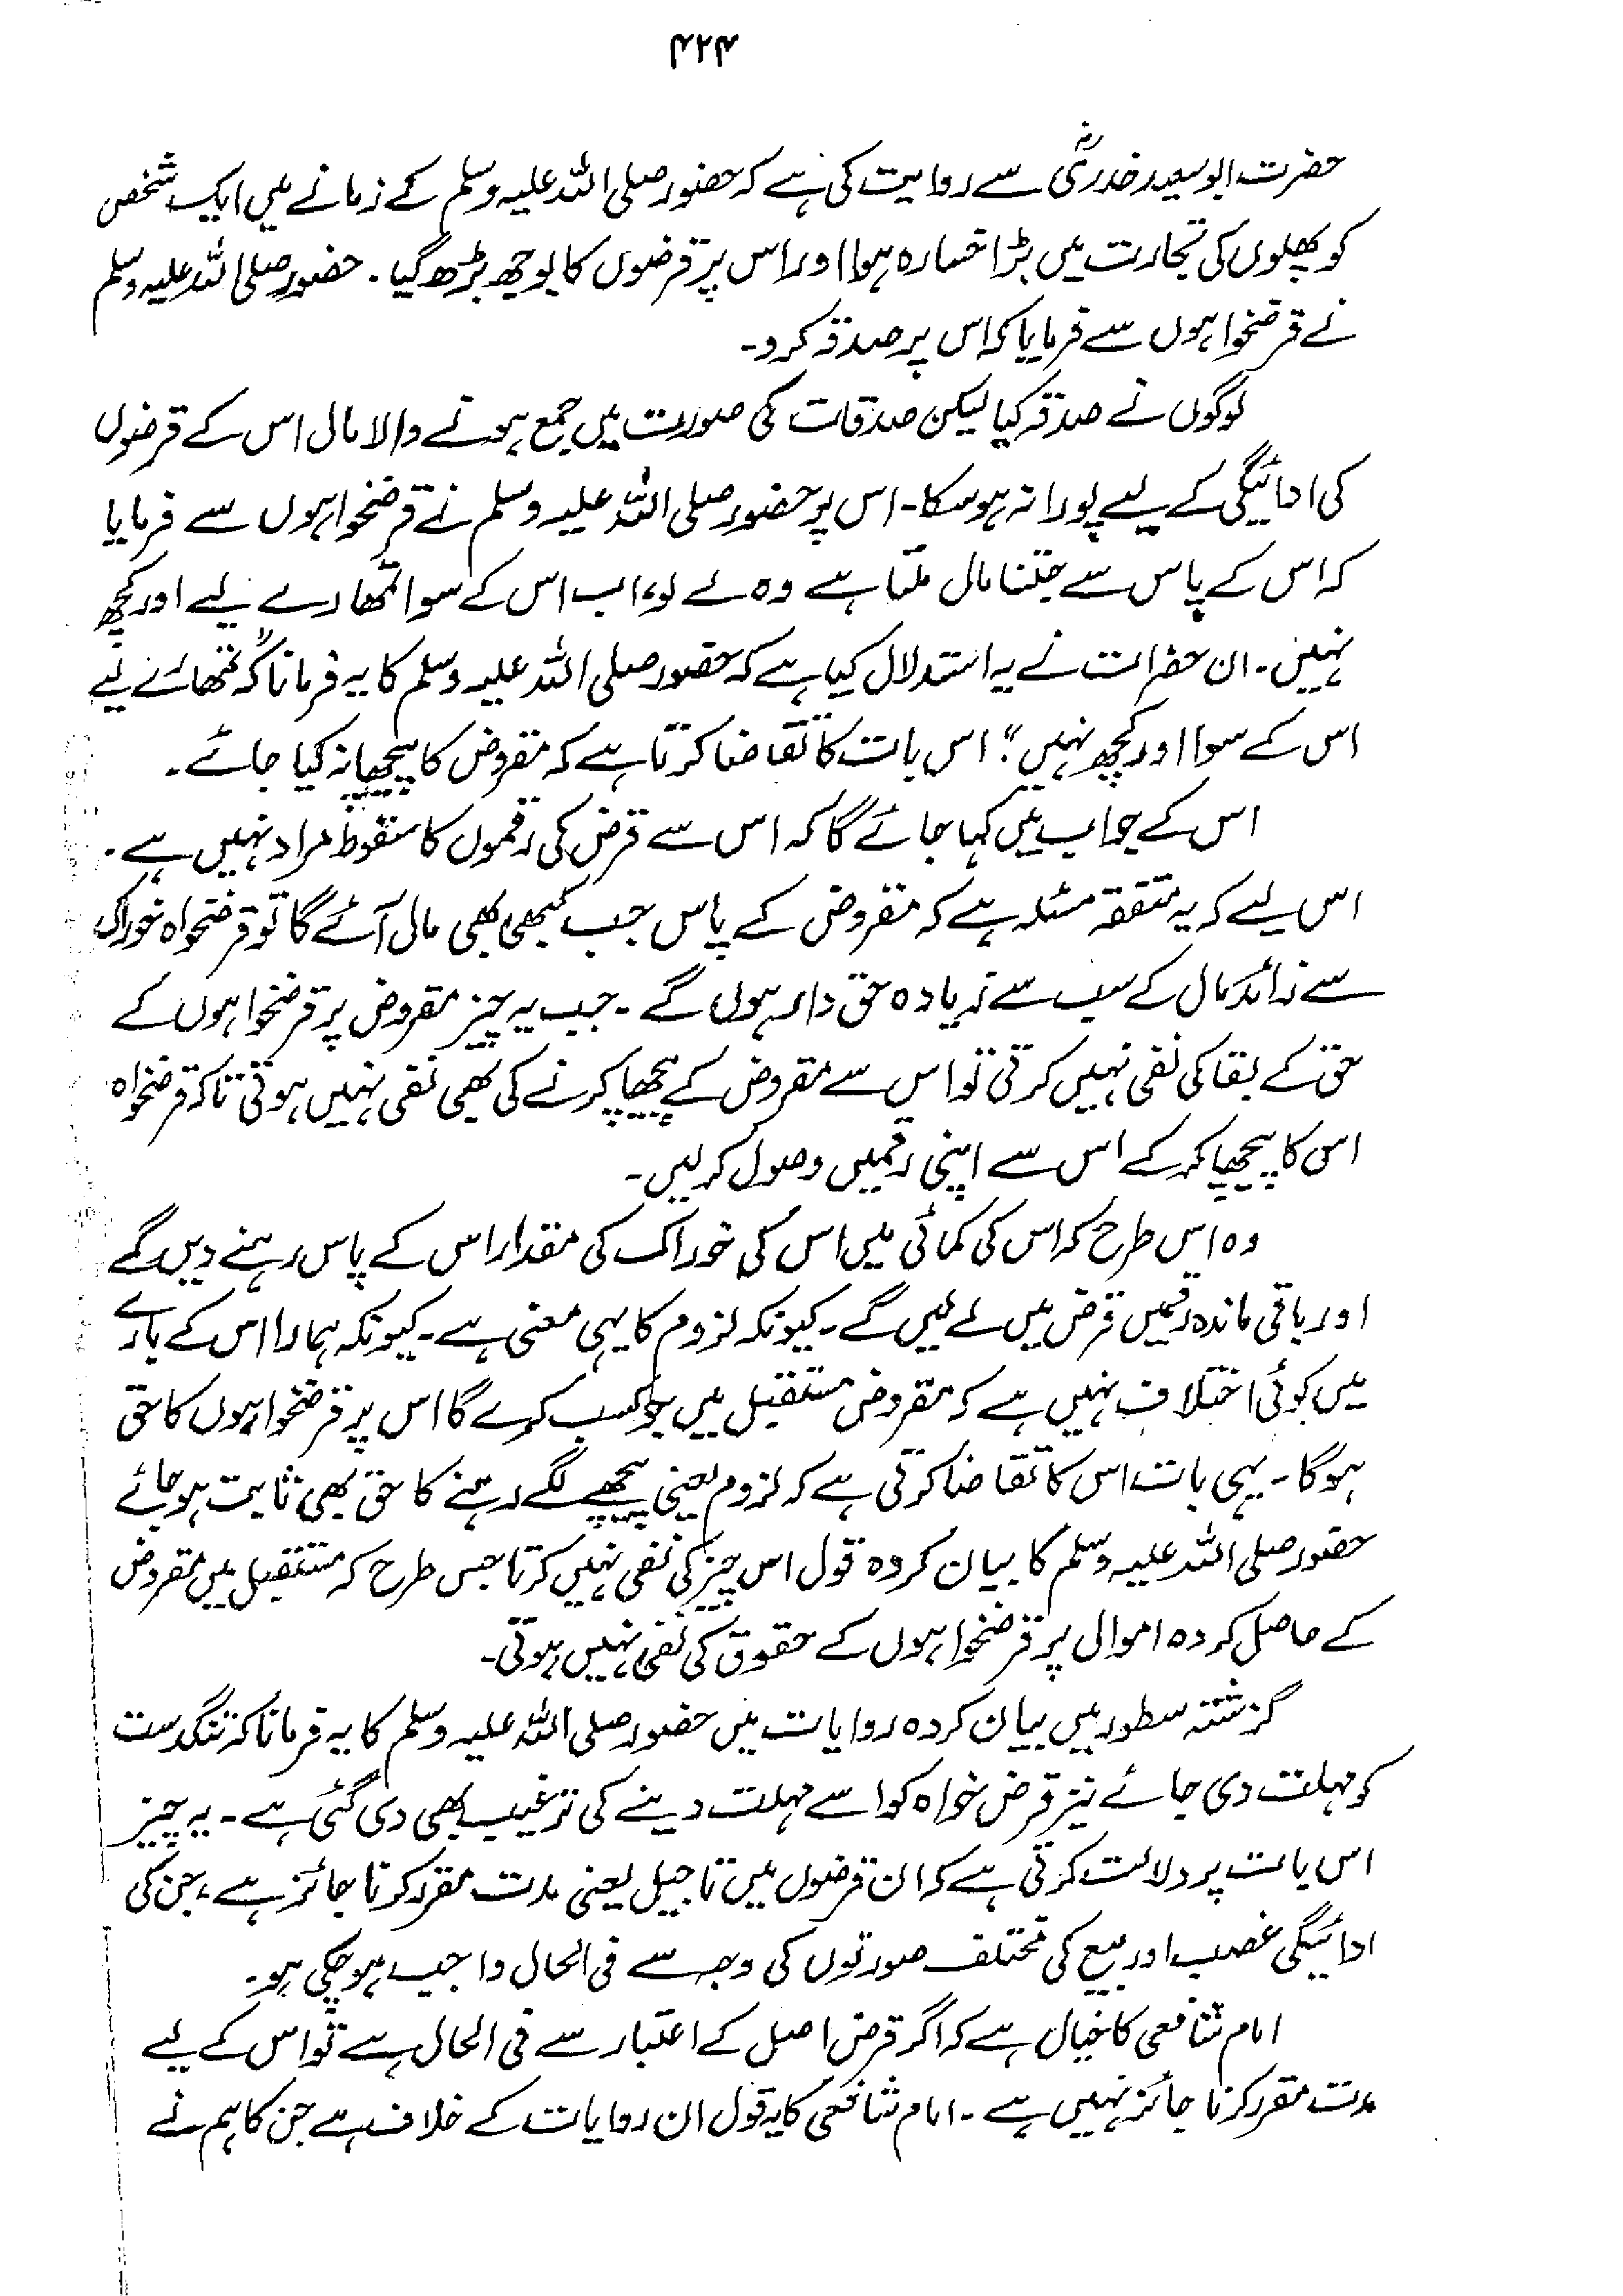 ۴۲۴
حضرت ابوسعید خدریؓ سے روایت کی ہے کہ حضور صلی اللہ علیہ وسلم کے زمانے میں ایک شخص
کو پھلوں کی تجارت میں بڑا خسارہ ہوا اور اس پر قرضوں کا بوجھ بڑھ گیا۔ حضور صلی اللہ علیہ وسلم
نے قرضخواہوں سے فرمایا کہ اس پر صدقہ کرو۔
لوگوں نے صدقہ کیا لیکن صدقات کی صورت میں جمع ہونے والا مال اس کے قرضوں
کی ادائیگی کے لیے پورا نہ ہوسکا۔ اس پر حضور صلی اللہ علیہ وسلم نے قرضخواہوں سے فرمایا
کہ اس کے پاس سے جتنا مال ملتا ہے وہ لے لو، اب اس کے سوا تمھارے لیے اور کچھ
نہیں۔ ان حضرات نے یہ استدلال کیا ہے کہ حضور صلی اللہ علیہ وسلم کا یہ فرمانا کہ "تمھارے لیے
اس کے سوا اور کچھ نہیں"؛ اس بات کا تقاضا کرتا ہے کہ مقروض کا پیچھا نہ کیا جائے۔
اس کے جواب میں کہا جائے گا کہ اس سے قرض کی رقموں کا سقوط مراد نہیں ہے۔
اس لیے کہ یہ متفقہ مسئلہ ہے کہ مقروض کے پاس جب کبھی بھی مال آئے گا تو قرضخواہ خوراک
سے زائد مال کے سب سے زیادہ حق دار ہوں گے۔ جب یہ چیز مقروض پر قرضخواہوں کے
حق کے بقا کی نفی نہیں کرتی تو اس سے مقروض کے پیچھا کرنے کی بھی نفی نہیں ہوتی تاکہ قرضخواہ
اس کا پیچھا کرکے اس سے اپنی رقمیں وصول کرلیں۔
وہ اس طرح کہ اس کی کمائی میں اس کی خوراک کی مقدار اس کے پاس رہنے دیں گے
اور باقی ماندہ رقمیں قرض میں لے لیں گے۔ کیونکہ لزوم کا یہی معنی ہے۔ کیونکہ ہمارا اس کے بارے
میں کوئی اختلاف نہیں ہے کہ مقروض مستقبل میں جو کسب کرے گا اس پر قرضخواہوں کا حق
ہوگا۔ یہی بات اس کا تقاضا کرتی ہے کہ لزوم یعنی پیچھے لگے رہنے کا حق بھی ثابت ہوجائے
حضور صلی اللہ علیہ وسلم کا بیان کردہ قول اس چیز کی نفی نہیں کرتا جس طرح کہ مستقبل میں مقروض
کے حاصل کردہ اموال پر قرضخواہوں کے حقوق کی نفی نہیں ہوتی۔
گزشتہ سطور میں بیان کردہ روایات میں حضور صلی اللہ علیہ وسلم کا یہ فرمانا کہ تنگدست
کو مہلت دی جائے نیز قرض خواہ کو اسے مہلت دینے کی ترغیب بھی دی گئی ہے۔ یہ چیز
اس بات پر دلالت کرتی ہے کہ ان قرضوں میں تاجیل یعنی مدت مقرر کرنا جائز ہے، جن کی
ادائیگی غصب اور بیع کی مختلف صورتوں کی وجہ سے فی الحال واجب ہوچکی ہو۔
امام شافعی کا خیال ہے کہ اگر قرض اصل کے اعتبار سے فی الحال ہے تو اس کے لیے
مدت مقرر کرنا جائز نہیں ہے۔ امام شافعی کا یہ قول ان روایات کے خلاف ہے جن کا ہم نے